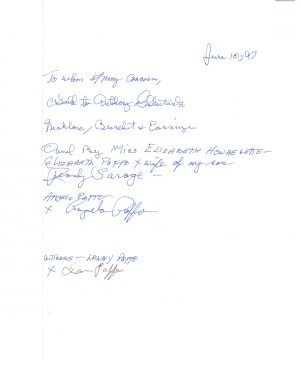 June 10, 97
To whom it may concern,
Sold to Anthony
Necklace, Bracelet & Earrings
Owned By Miss ELIZABETH HOWLETTE
ELIZABETH POFFO x wife of my son
Randy Savage —
ANGELO POFFO
x Angelo Poffo
WITNESS — LANNY POFFO
x Poffo